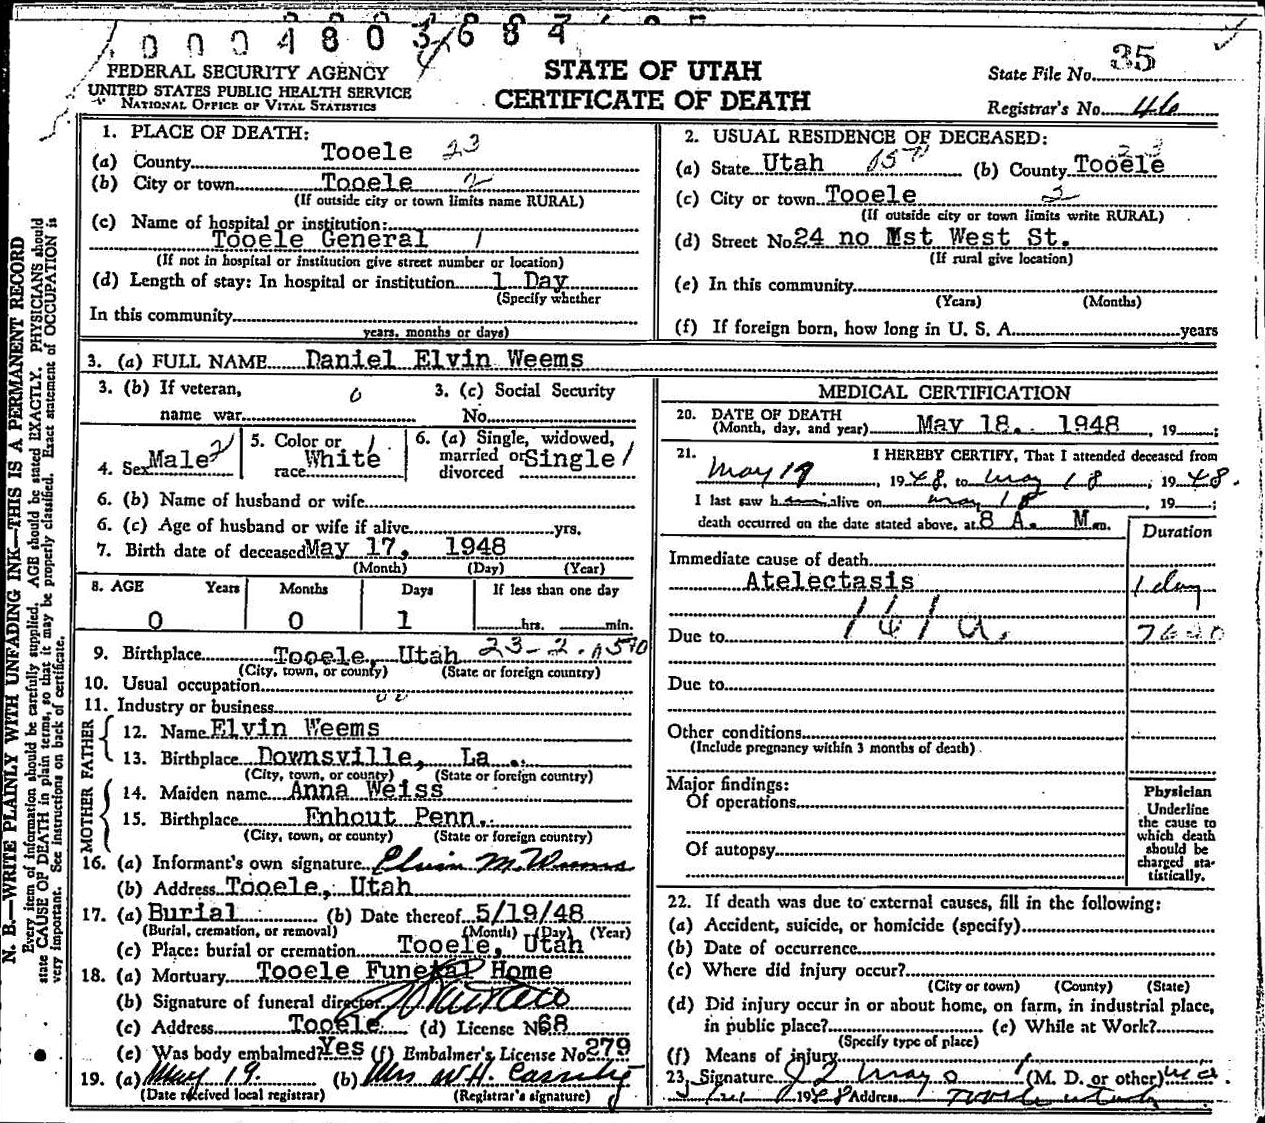 0 0 0 4 8 0 3 6 8 4
FEDERAL SECURITY AGENCY
UNITED STATES PUBLIC HEALTH SERVICE
NATIONAL OFFICE OF VITAL STATISTICS
STATE OF UTAH
CERTIFICATE OF DEATH
State File No. 35
Registrar's No. 46
N. B.—WRITE PLAINLY WITH UNFADING INK—THIS IS A PERMANENT RECORD
Every item of information should be carefully supplied. AGE should be stated EXACTLY. PHYSICIANS should
state CAUSE OF DEATH in plain terms, so that it may be properly classified. Exact statement of OCCUPATION is
very important. See instructions on back of certificate.
1. PLACE OF DEATH:
(a) County Tooele 23
(b) City or town Tooele 2
(If outside city or town limits name RURAL)
(c) Name of hospital or institution:
Tooele General 1
(If not in hospital or institution give street number or location)
(d) Length of stay: In hospital or institution 1 Day
(Specify whether
In this community
years, months or days)
2. USUAL RESIDENCE OF DECEASED:
(a) State Utah (b) County Tooele
(c) City or town Tooele 2
(If outside city or town limits write RURAL)
(d) Street No. 24 no 1st West St.
(If rural give location)
(e) In this community
(Years) (Months)
(f) If foreign born, how long in U. S. A. years
3. (a) FULL NAME Daniel Elvin Weems
3. (b) If veteran, 0 3. (c) Social Security
name war No.
4. Sex Male 2 5. Color or race White 1 6. (a) Single, widowed, married or divorced Single 1
6. (b) Name of husband or wife
6. (c) Age of husband or wife if alive yrs.
7. Birth date of deceased May 17, 1948
(Month) (Day) (Year)
8. AGE Years Months Days If less than one day
0 0 1 hrs. min.
9. Birthplace Tooele, Utah 23-2
(City, town, or county) (State or foreign country)
10. Usual occupation
11. Industry or business
FATHER
12. Name Elvin Weems
13. Birthplace Downsville, La.
(City, town, or county) (State or foreign country)
MOTHER
14. Maiden name Anna Weiss
15. Birthplace Enhout Penn.
(City, town, or county) (State or foreign country)
16. (a) Informant's own signature Elvin M. Weems
(b) Address Tooele, Utah
17. (a) Burial (b) Date thereof 5/19/48
(Burial, cremation, or removal) (Month) (Day) (Year)
(c) Place: burial or cremation Tooele, Utah
18. (a) Mortuary Tooele Funeral Home
(b) Signature of funeral director
(c) Address Tooele (d) License No 68
(e) Was body embalmed? Yes (f) Embalmer's License No 279
19. (a) May 19. (b) Mrs W.H. Cassity
(Date received local registrar) (Registrar's signature)
MEDICAL CERTIFICATION
20. DATE OF DEATH
(Month, day, and year) May 18. 1948, 19 ;
21. I HEREBY CERTIFY, That I attended deceased from
May 17, 1948, to May 18, 1948.
I last saw h alive on May 18, 19 ;
death occurred on the date stated above, at 8 A. M m.
Duration
Immediate cause of death
Atelectasis 1 day
161a.
Due to
Due to
Other conditions
(Include pregnancy within 3 months of death)
Major findings:
Of operations
Of autopsy
Physician
Underline
the cause to
which death
should be
charged sta-
tistically.
22. If death was due to external causes, fill in the following:
(a) Accident, suicide, or homicide (specify)
(b) Date of occurrence
(c) Where did injury occur?
(City or town) (County) (State)
(d) Did injury occur in or about home, on farm, in industrial place,
in public place? (e) While at Work?
(Specify type of place)
(f) Means of injury
23. Signature Mayo (M. D. or other) M.D.
1948 Address Tooele Utah